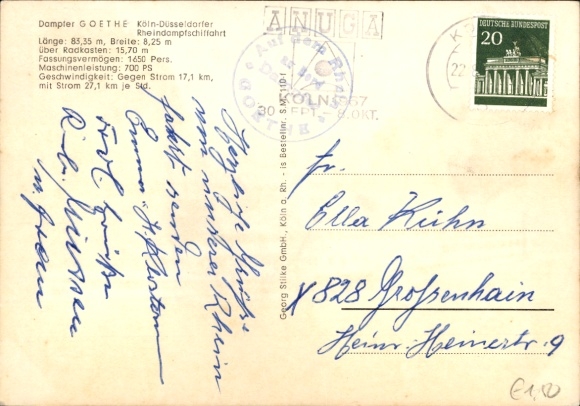 Dampfer GOETHE Köln-Düsseldorfer
Rheindampfschiffahrt
Länge: 83,35 m, Breite: 8,25 m
über Radkasten: 15,70 m
Fassungsvermögen: 1650 Pers.
Maschinenleistung: 700 PS
Geschwindigkeit: Gegen Strom 17,1 km,
mit Strom 27,1 km je Std.
ANUGA
KÖLN 1967
30. SEPT. 8. OKT.
Auf dem Rhein
an Bord
GOETHE
DEUTSCHE BUNDESPOST
20
Georg Stilke GmbH., Köln a. Rh. - is Bestellnr. S.M. 110 I
Herzliche Grüße
von unserer Rhein
fahrt senden
Emma
Frdl. Grüße
u. Frau
Fr.
Ella Kühn
X 828 Großenhain
Heinr.-Heinestr. 9
€1,50